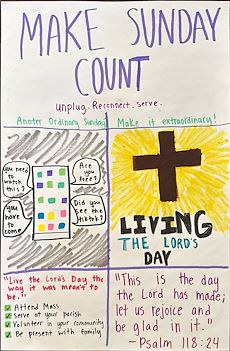 MAKE SUNDAY
COUNT
Unplug. Reconnect. Serve.
Anoter Ordinary Sunday
Make it extraordinary!
You need
to
watch
this?
Are
you
free?
you
have
to
come
Did you
see the
tiktok?
LIVING
THE LORD'S
DAY
"Live the Lord's Day the
way it was meant to
be."
Attend Mass
Serve at your parish
Volunteer in your community
Be present with family
"This is the day
the Lord has made;
let us rejoice and
be glad in it."
-Psalm 118:24